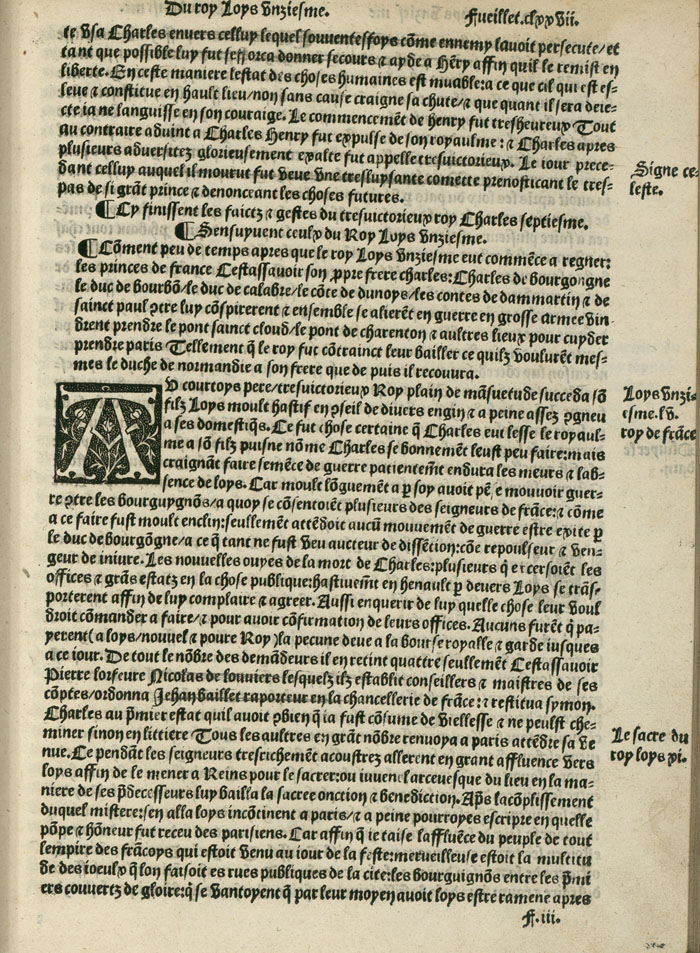 Du roy Loys vnziesme.
Fueillet.clxxvii.
te vsa Charles enuers celluy lequel souuenteffoys cõme ennemy lauoit persecute/et
tant que possible luy fut sefforca donner secours & ayde a Hẽry affin quil le remist en
liberte. En ceste maniere lestat des choses humaines est muable: a ce que cil qui est es-
leue & constitue en hault lieu/non sans cause craigne sa chute/& que quant il sera deie-
cte ia ne languisse en son couraige. Le commencemẽt de henry fut tresheureux Tout
au contraire aduint a Charles Henry fut expulse de son royaulme: & Charles apres
plusieurs aduersitez glorieusement exalte fut appelle tresuictorieux. Le iour prece-
dant celluy auquel il mourut fut veue vne tresluysante comette prenosticant le tres-
pas de si grãt prince & denonceant les choses futures.
Signe ce-
leste.
¶ Cy finissent les faictz & gestes du tresuictorieux roy Charles septiesme.
¶ Sensuyuent ceulx du Roy Loys vnziesme.
¶ Cõment peu de temps apres que le roy Loys vnziesme eut commẽce a regner:
les princes de france Cestassauoir son ꝓpre frere charles: Charles de bourgongne
le duc de bourbõ/le duc de calabre/le cõte de dunoys/les contes de dammartin & de
sainct paul ꝯtre luy cõspirerent & ensemble se alierẽt en guerre en grosse armee vin
drent prendre le pont sainct cloud/le pont de charenton & aultres lieux pour cuyder
prendre paris Tellement q̃ le roy fut cõtrainct leur bailler ce quilz voulurẽt mes-
mes le duche de normandie a son frere que de puis il recouura.
AV courtoys pere/tresuictorieux Roy plain de mãsuetude succeda sõ
filz Loys moult hastif en ꝯseil de diuers engin & a peine assez ꝯgneu
a ses domestiq̃s. Ce fut chose certaine q̃ Charles eut lesse le royaul-
me a sõ filz puisne nõme Charles se bonnement leust peu faire: mais
craignãt faire semẽce de guerre patientemẽt endura les meurs & lab-
sence de loys. Car moult lõguemẽt a ꝑ soy auoit pẽse mouuoir guer-
re ꝯtre les bourguygnõs/a quoy se cõsentoiẽt plusieurs des seigneurs de frãce: & cõme
a ce faire fust moult enclin: seullemẽt attẽdoit aucũ mouuemẽt de guerre estre excite ꝑ
le duc de bourgõgne/a ce q̃ tant ne fust veu aucteur de dissẽtion: cõe repoulseur & ven-
geur de iniure. Les nouuelles ouyes de la mort de Charles: plusieurs q̃ exercsoiẽt les
offices & grãs estatz en la chose publique: hastiuemẽt en henault ꝑ deuers Loys se trãs-
porterent affin de luy complaire & agreer. Aussi enquerir de luy quelle chose leur voul
droit cõmander a faire/& pour auoir cõfirmation de leurs offices. Aucuns furẽt q̃ pa-
yerent (a loys/nouuel & poure Roy) la pecune deue a la bourse royalle & garde iusques
a ce iour. De tout le nõbre des demãdeurs il en retint quattre seullemẽt Cestassauoir
Pierre lorfeure Nicolas de louuiers lesquelz ilz establit conseillers & maistres de ses
cõptes/ordonna Jehan baillet raporteur en la chancellerie de frãce: & restitua symon.
Charles au p̃mier estat quil auoit ꝯbien q̃ ia fust cõsume de viellesse & ne peulst che-
miner sinon en littiere Tous les aultres en grãt nõbre renuoya a paris attẽdre sa ve
nue. Ce pendãt les seigneurs tresrichemẽt acoustrez allerent en grant affluence vers
loys affin de le mener a Reins pour le sacrer: ou iuuenel arceuesque du lieu en la ma-
niere de ses p̃decesseurs luy bailla la sacree onction & benediction. Ap̃s lacõplissement
duquel mistere: sen alla loys incõtinent a paris/& a peine pourroyes escripre en quelle
põpe & hõneur fut receu des parisiens. Car affin q̃ ie taise laffluẽce du peuple de tout
lempire des frãcoys qui estoit venu au iour de la feste: merueilleuse estoit la multitu
de des ioeulx q̃ lon faisoit es rues publiques de la cite: les bourguignõs entre les p̃mi
ers couuertz de gloire: q̃ se vantoyent q̃ par leur moyen auoit loys estre ramene apres
Loys vnzi-
esme. lv.
roy de frãce
Le sacre du
roy loys xi.
ff.iii.